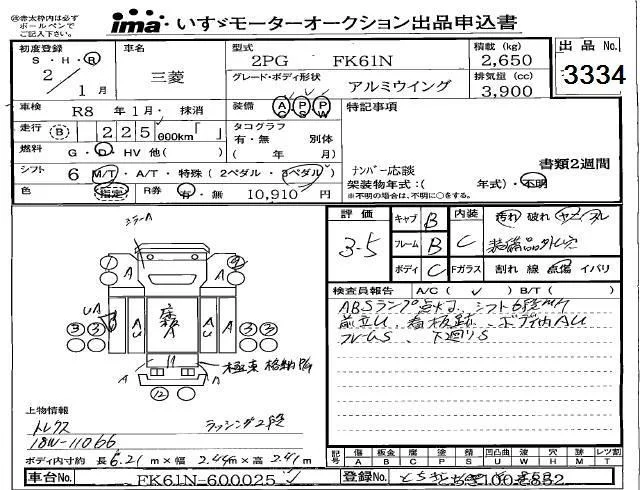 ※赤太枠内は必ずボールペンでご記入下さい。
ima いすゞモーターオークション出品申込書
初度登録 S・H・R 2/1月
車名 三菱
型式 2PG FK61N
積載(kg) 2,650
出品No. 3334
グレード・ボディ形状 アルミウイング
排気量(cc) 3,900
車検 R8年1月・抹消
装備 AC PS PW
特記事項
走行 B 225 000km「 」
タコグラフ 有・無 別体 ( 年 月)
燃料 G・D・HV 他( )
シフト 6 M/T・A/T・特殊(2ペダル・3ペダル)
ナンバー応談
書類2週間
架装物年式:( 年式)・不明
※不明の場合は、不明に○をする。
色 指定
R券 有・無 10,910円
評価 3-5
キャブ B
フレーム B
ボディ C
内装 C
汚れ 破れ ヤニ フル
装備品外し穴
Fガラス 割れ 線 点傷 イバリ
検査員報告 A/C( ✓ ) B/T( )
ABSランプ点灯、シフト6段MH
前立U、看板跡、ボディ内AU
フレームS、下廻りS
ミラーA
A
A
UA
AU
床板A
AU
A
A
A
極東 格納P/G
③③
③③
⑫
上物情報
トレクス
18W-11066
ラッシング2段
ボディ内寸約 長6.21m×幅2.44m×高2.41m
記号 傷A 板金B 腐C 塗P 錆S 凹凸曲U 波W 穴H 跡M レツ割T
車台No. FK61N-600025
登録No. とちぎ100